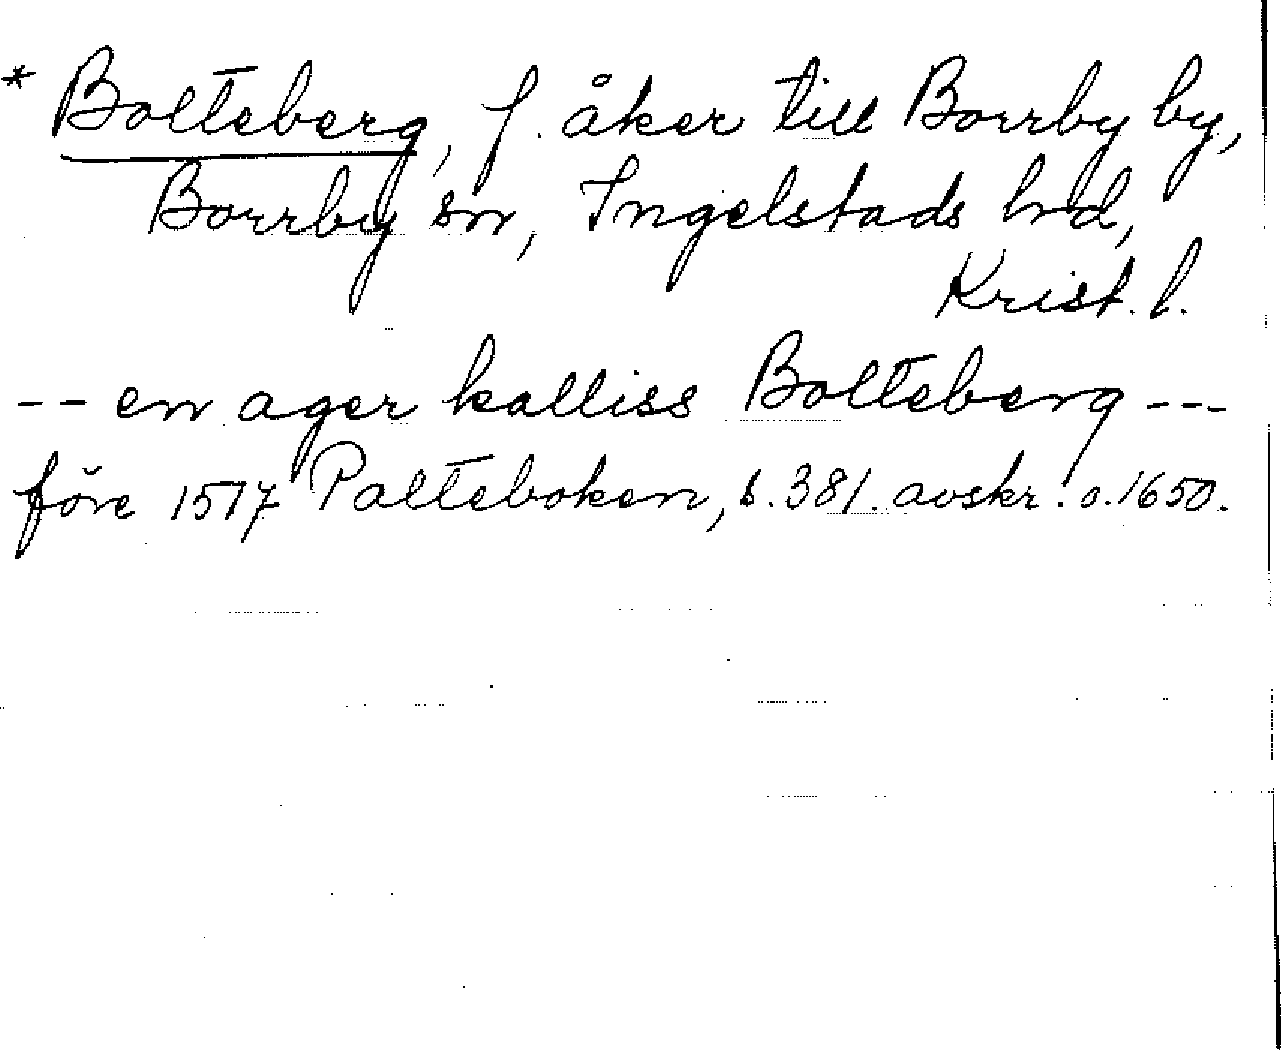 * Bolteberg, f. åker till Borrby by,
Borrby sn, Ingelstads hd,
Krist. l.
-- en ager kalliss Bolteberg ---
före 1517 Palteboken, s. 381. avskr. o. 1650.